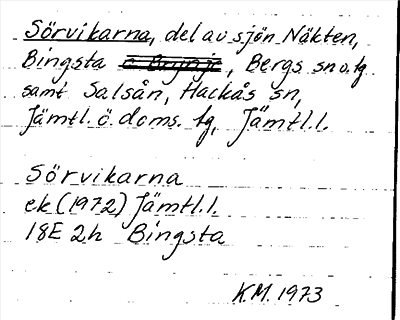 Sörvikarna, del av sjön Näkten,
Bingsta, Bergs sn o. tg
samt Salsån, Hackås sn,
Jämtl. ö. doms. tg, Jämtl. l.
Sörvikarna
ek (1972) Jämtl. l.
18E 2h Bingsta
K.M. 1973